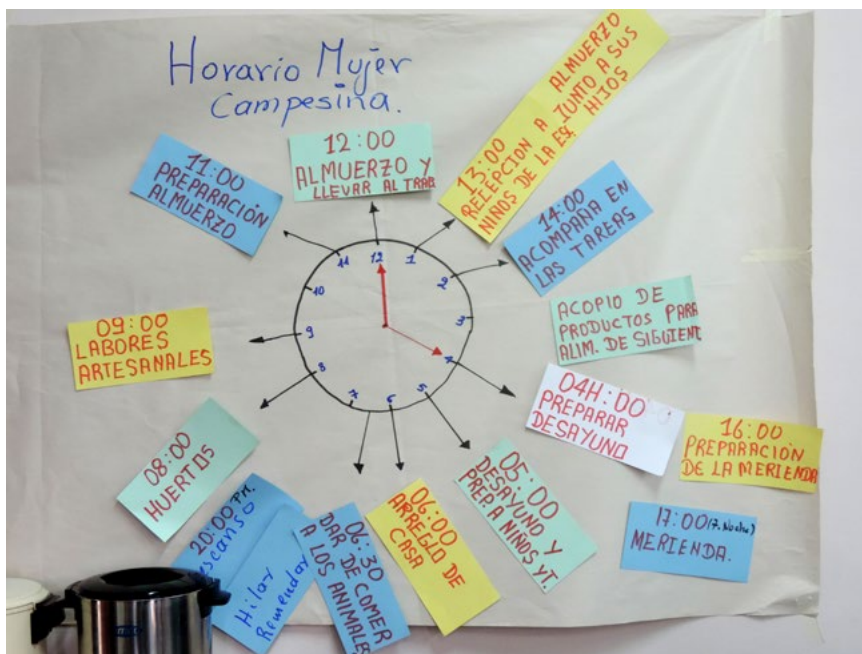 Horario Mujer
Campesina.
12:00
ALMUERZO Y
LLEVAR AL TRAB
13:00 ALMUERZO
RECEPCION A JUNTO A SUS
NIÑOS DE LA EQ HIJOS
14:00
ACOMPAÑA EN
LAS TAREAS
ACOPIO DE
PRODUCTOS PARA
ALIM. DE SIGUIENT
04H:00
PREPARAR
DESAYUNO
16:00
PREPARACIÓN
DE LA MERIENDA
17:00 (7. Noche)
MERIENDA.
05:00
DESAYUNO Y
PREP. A NIÑOS YT.
06:00
ARREGLO DE
CASA
06:30
DAR DE COMER
A LOS ANIMALES
20:00 PM.
Hilar
Remendar
08:00
HUERTOS
09:00
LABORES
ARTESANALES
11:00
PREPARACIÓN
ALMUERZO
12
1
2
3
4
5
6
7
8
9
10
11